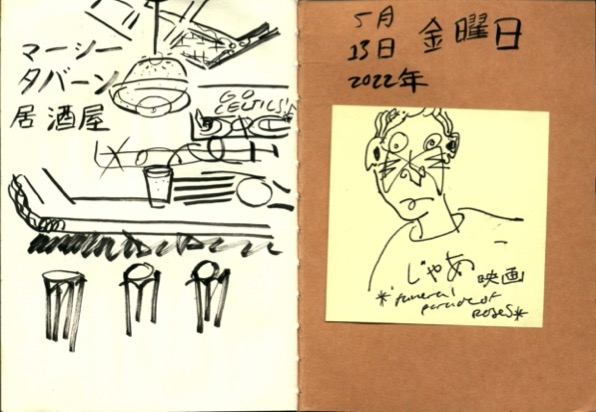 マーシー
タバーン
居酒屋
GO
CELTICS!
5月
13日 金曜日
2022年
じゃあ 映画
*funeral
parade of
roses*